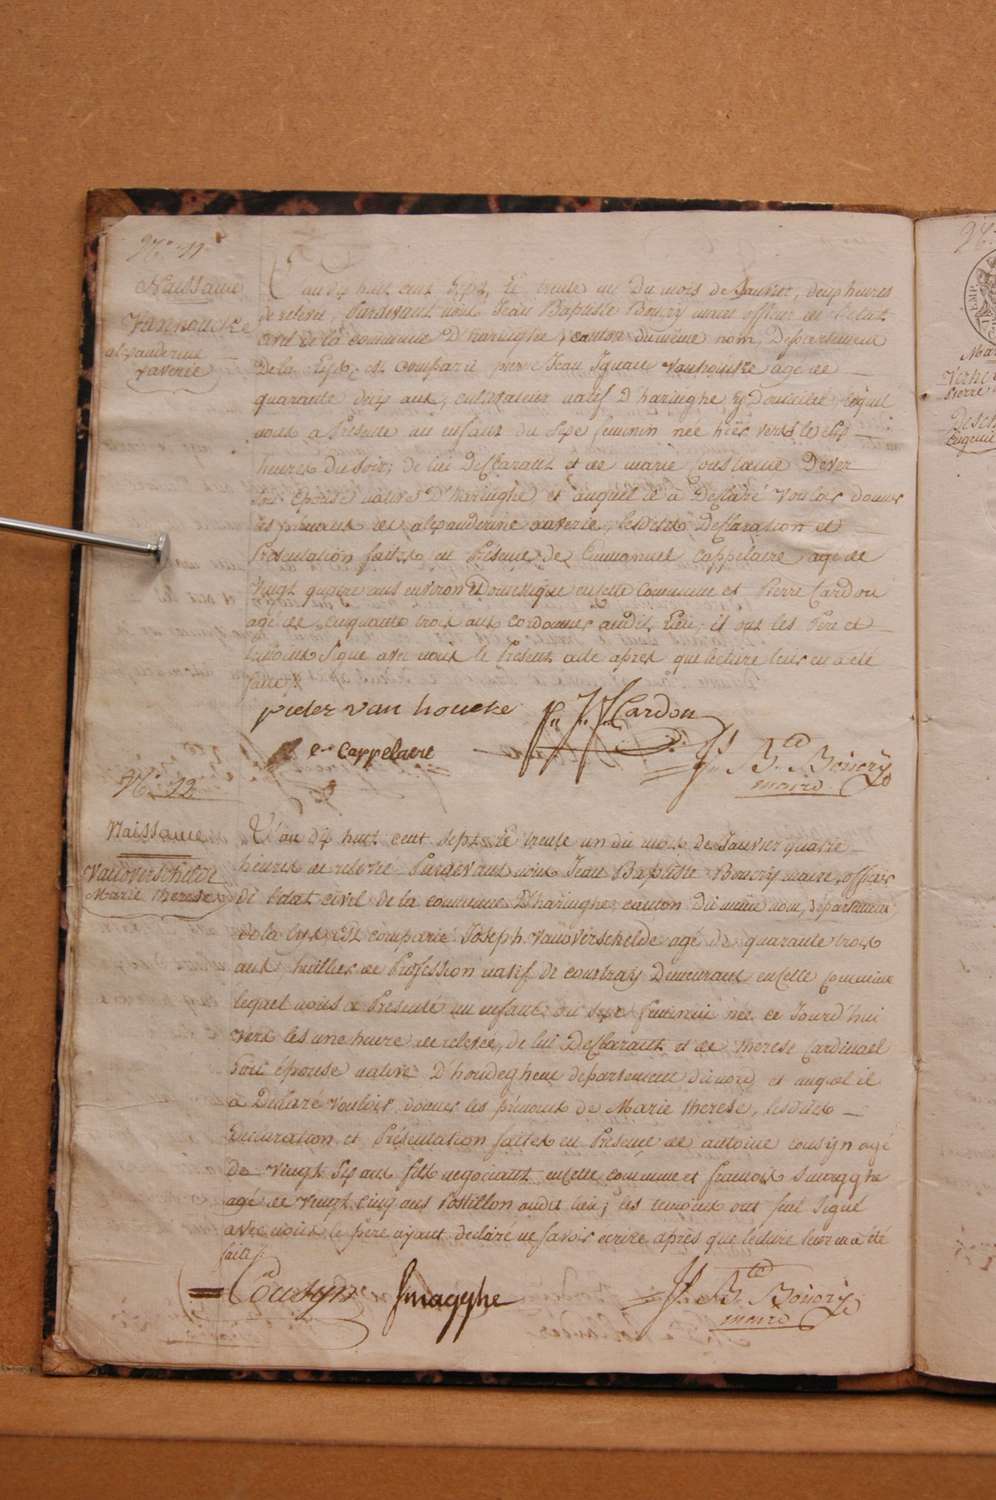 N.° 11
Naissame
Vanhoucke
alexanderine
xaverie
L'an dix huit cent sept, Le trente un Du mois de Janvier, deux heures
de relevé, Pardevant nous Jean Baptiste Bouvry maire officier de l'etat
civil de la commune D'haringhe, canton du même nom, Departement
De la Lys, est comparu pierre Jean Ignace vanhoucke agé de
quarante deux ans, cultivateur natif D'haringhe y Domicilié, lequel
nous a Presenté un enfant du sexe feminin née hier vers les sept
heures Du Soir, de lui Desclarant et de marie
Son Epouse native D'haringhe et auquel il à Desclaré vouloir donner
les prenoms de alexanderine xaverie, lesdites Desclaration et
Presentation faites en Presence de Emmanuel Cappelaire agé de
vingt quatre ans environ Domestique en cette Commune et Pierre Cardon
agé de Cinquante trois ans cordonier audit Lieu; et ont les Pere et
temoins Signé avec nous le Present acte apres que lecture leur en a été
faite
pieter van houcke
P J Cardon
e Cappelaere
J. Bte Bouvry
maire
N.° 12
Naissame
Vanoverschelde
Marie therese
L'an dix huit cent sept, Le trente un du mois de Janvier quatre
heures de relevée Pardevant nous Jean Baptiste Bouvry maire, officier
de l'etat civil de la commune D'haringhe canton Du même nom, departement
de la Lys est comparu Joseph Vanoverschelde agé de quarante trois
ans huillier de Profession natif de courtray Demeurant en cette Commune
lequel nous a Presenté un enfant du sexe feminin née ce Jourd'hui
vers les une heure de relevée, de lui Desclarant et de therese Cardinael
Son épouse native D'houdeghem departement du nord et auquel il
à Declaré vouloir donner les prénoms de Marie therese, lesdites
Declaration et Présentation faites en Presence de antoine cousyn agé
de vingt six ans fils negociant en cette commune et francois Smagghe
agé de vingt cinq ans Postillon audit lieu; les temoins ont seul Signé
avec nous le père ayant declaré ne savoir ecrire apres que lecture leur en a été
faite
Cousyn
Smagghe
J. Bte Bouvry
maire